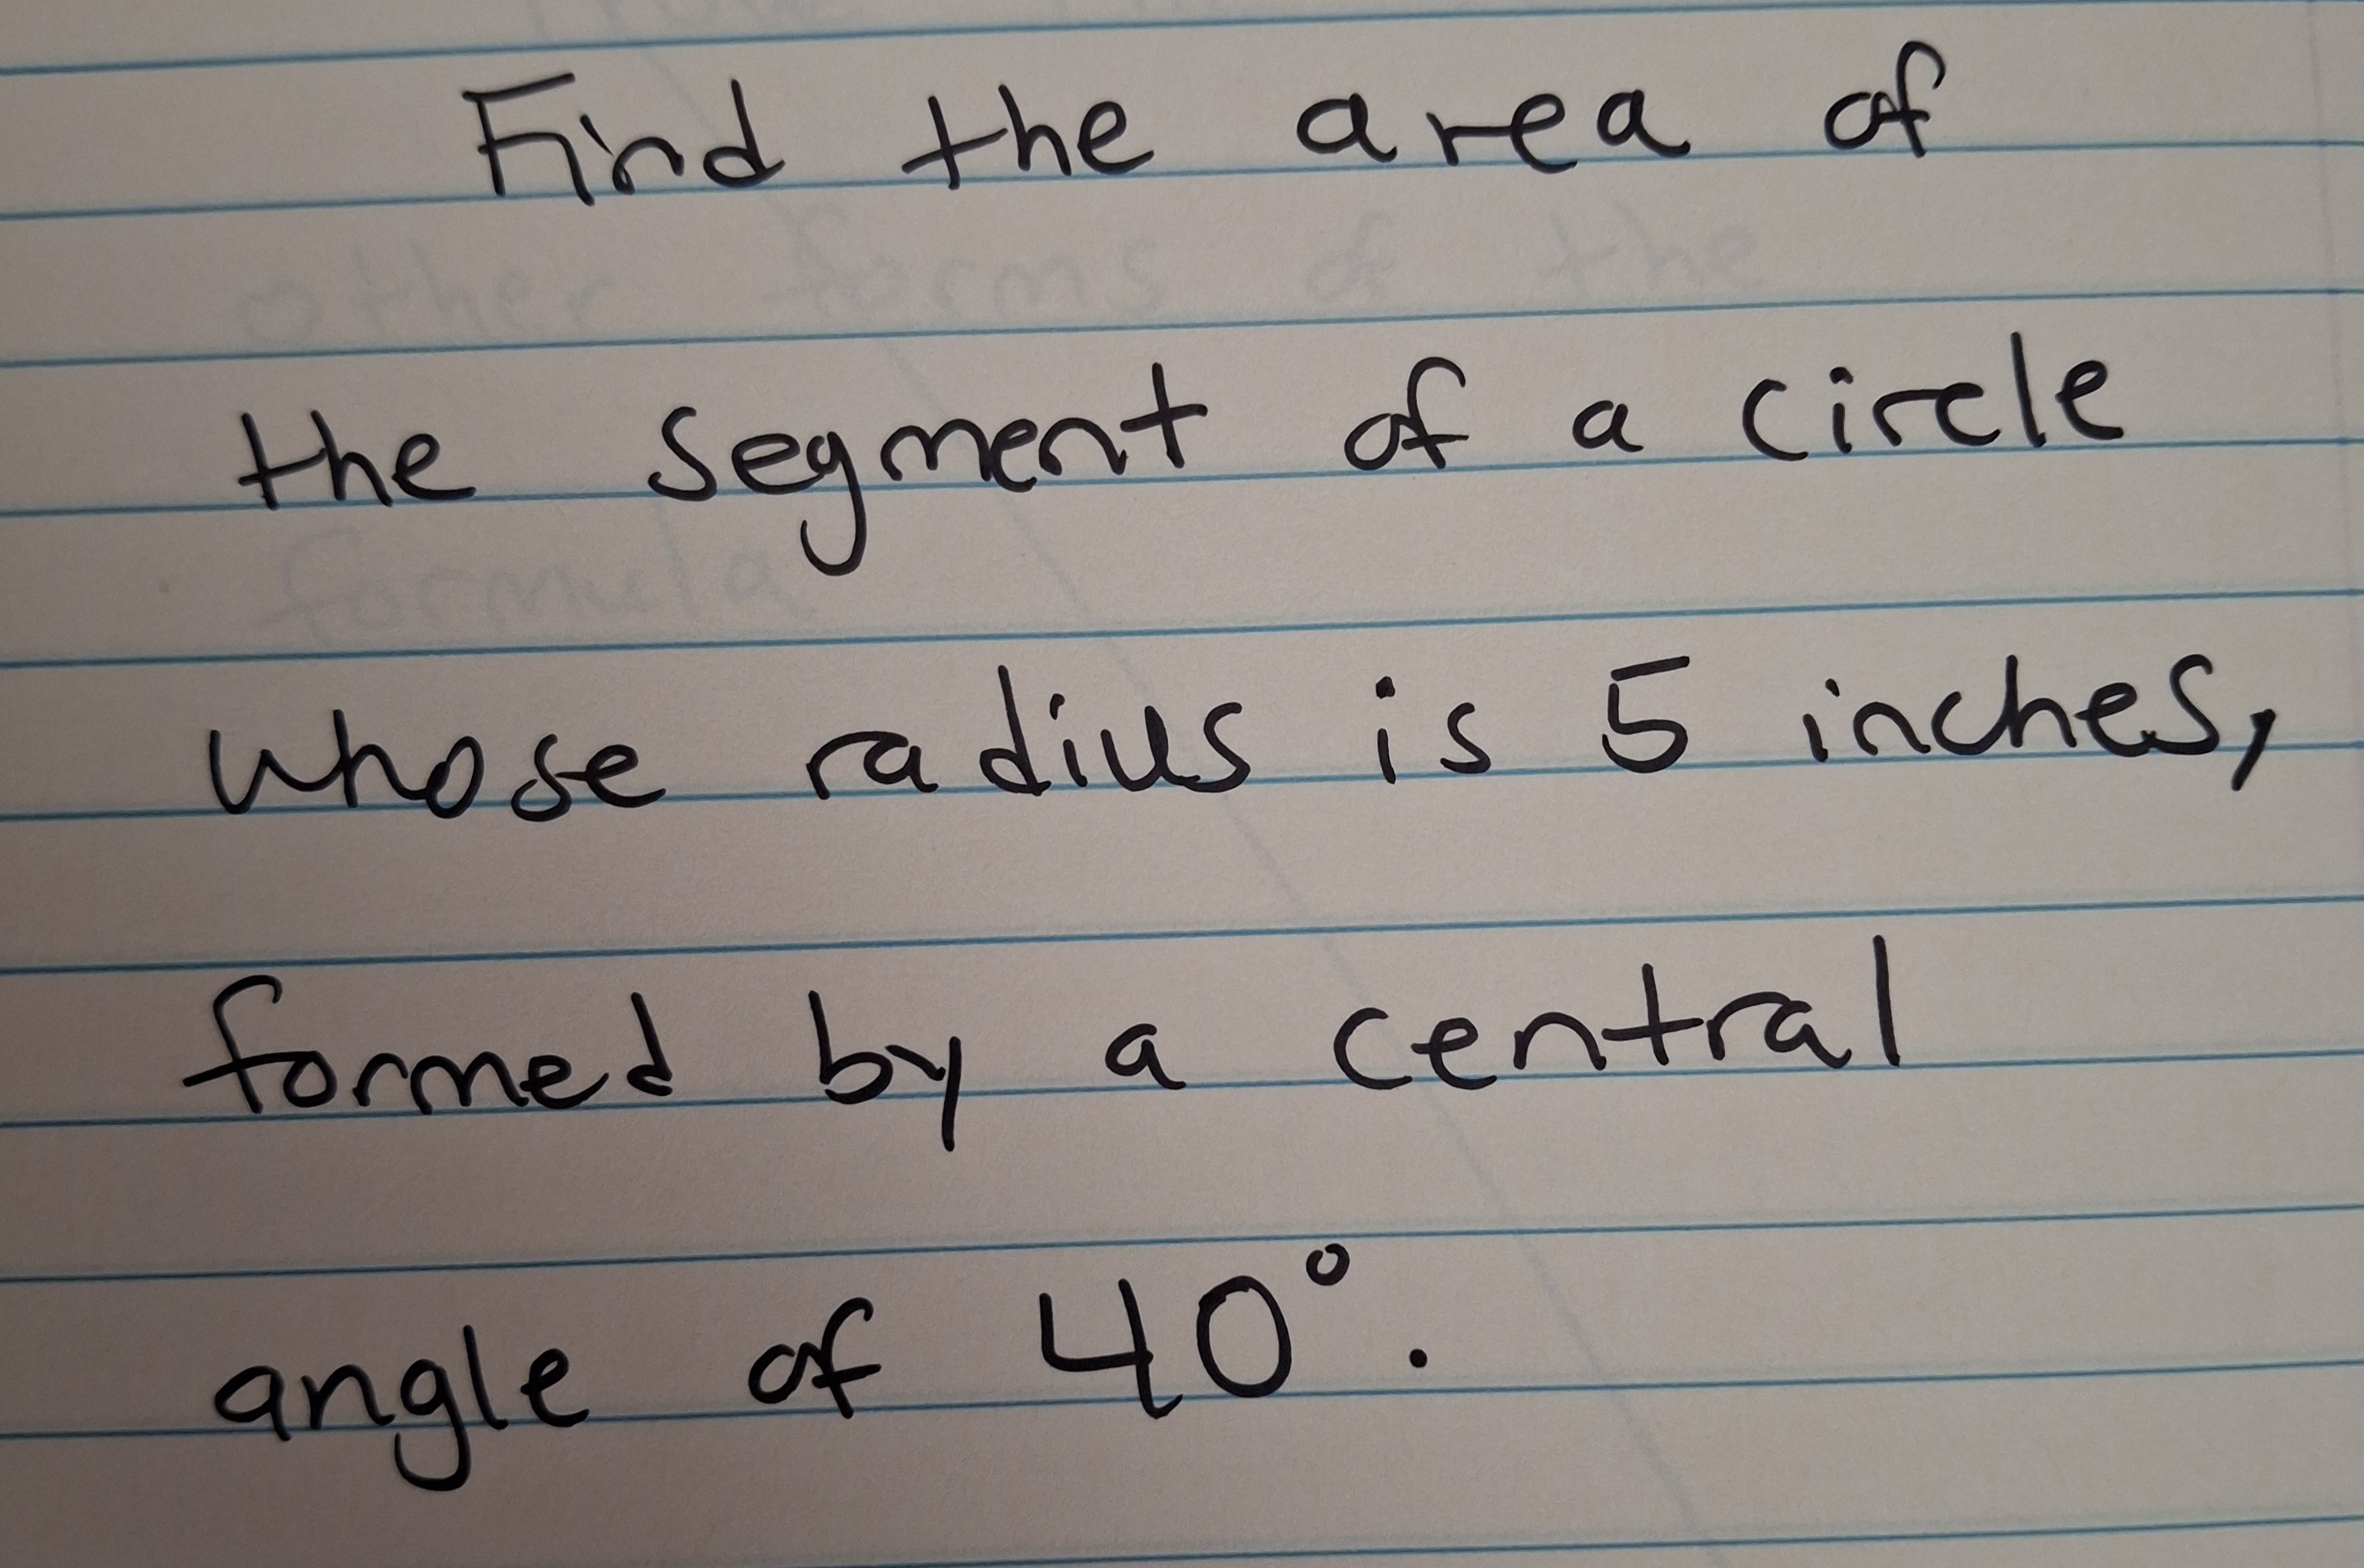 Find the area of
the segment of a circle
whose radius is 5 inches,
formed by a central
angle of 40°.